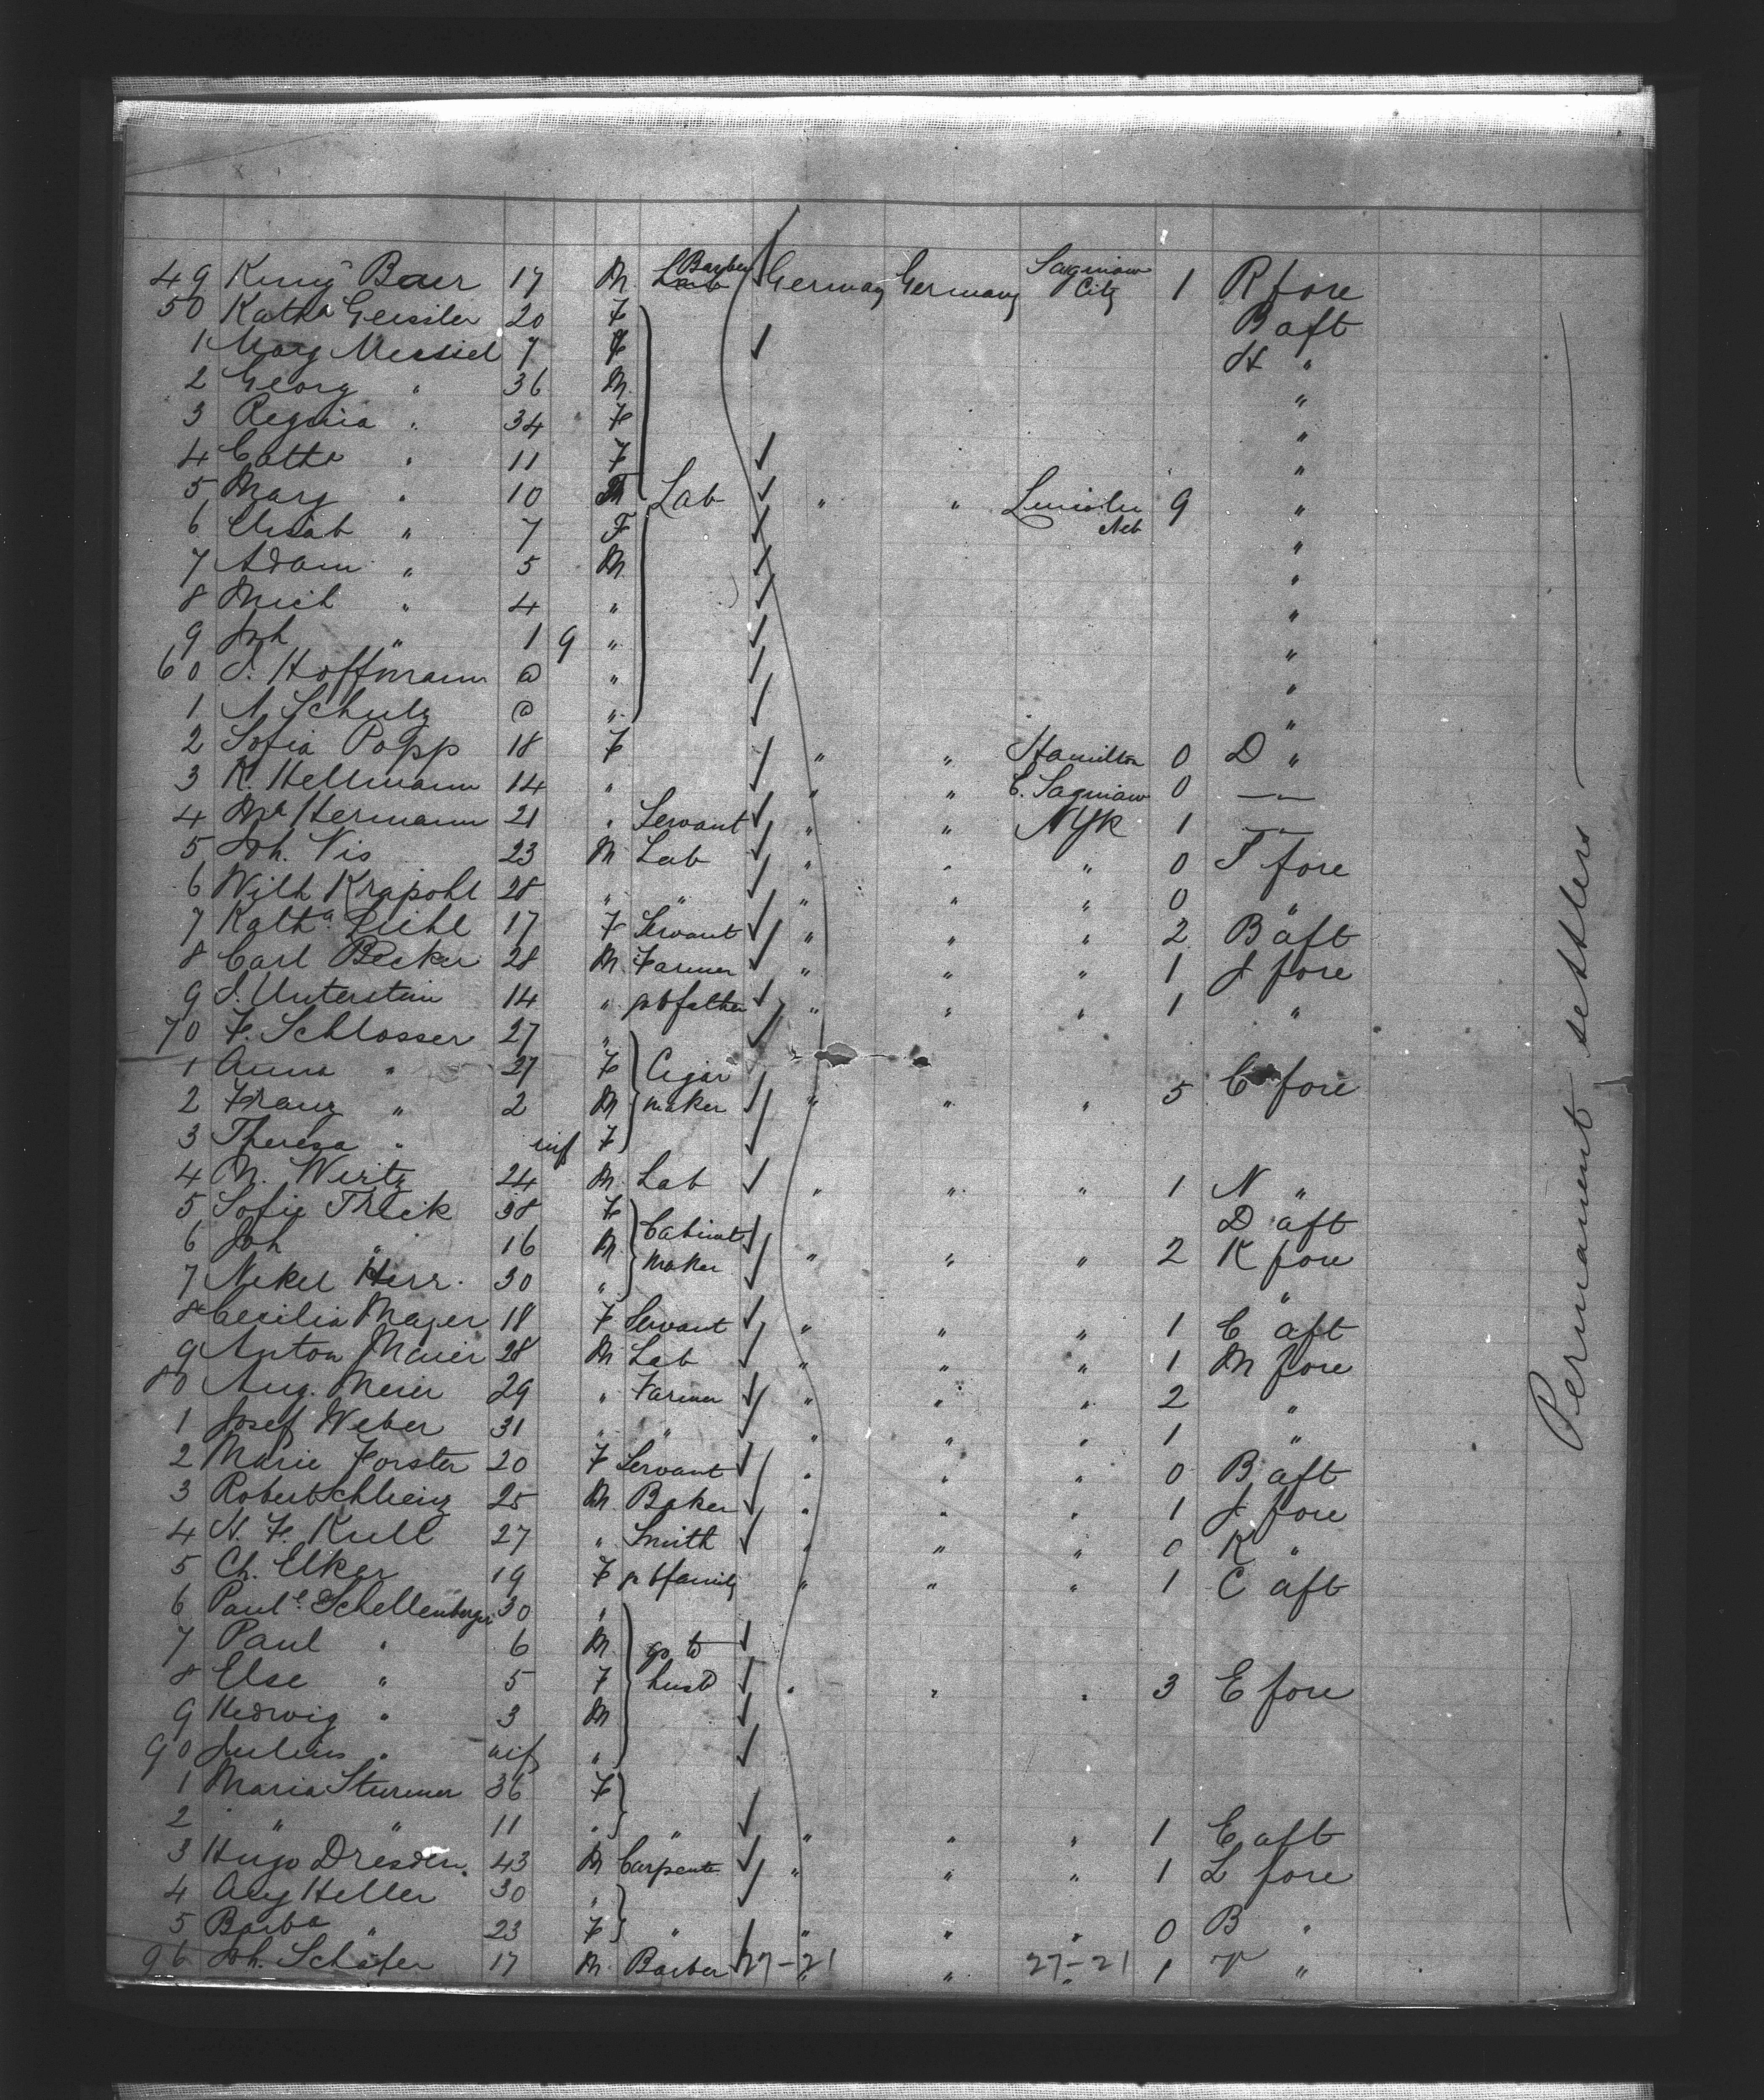 49 Baer 17 M. Lab Barber Germany Germany Saginaw City 1 R fore
50 Katha Geissler 20 F B aft
1 Marg 7 F H "
2 Georg " 36 M. "
3 Regina " 34 F "
4 Catha " 11 F "
5 Marg " 10 Lab " " Lincoln Neb 9 "
6 Elisab " 7 F "
7 Adam " 5 M "
8 Mich " 4 " "
9 Joh " 1 9 " "
60 Hoffmann " "
1 A Schulz " "
2 Sofia Popp 18 F " " Hamilton 0 D "
3 K. Hellmann 14 " " " E. Saginaw 0 —"—
4 Ma Hermann 21 " Servant " " NYk 1 —"—
5 Joh. Vis 23 M Lab " " " 0 T fore
6 Wilh Krapohl 28 " " " " " 0 "
7 Katha Diehl 17 F Servant " " " 2 B aft
8 Carl Becker 28 M. Farmer " " " 1 J fore
9 Unterstein 14 " father " " " 1 "
70 F. Schlosser 27 "
1 Anna " 27 F Cigar
2 Franz " 2 M maker " " " 5 C fore
3 Theresa " inf F
4 M. Wirtz 24 M. Lab " " " 1 N "
5 Sofie 38 F Cabinet D aft
6 Joh " 16 M. maker " " " 2 K fore
7 Herr. 30 " "
8 Cecilia Mayer 18 F Servant " " " 1 C aft
9 Anton Maier 28 M Lab " " " 1 M fore
80 Aug. Meier 29 " Farmer " " " 2 "
1 Josef Weber 31 " " " " " 1 "
2 Marie Forster 20 F Servant " " " 0 B aft
3 Robert 25 M Baker " " " 1 J fore
4 N. F. Kull 27 " Smith " " " 0 K "
5 Ch. Elker 19 F family " " " 1 C aft
6 Paule Schellenberger 30 "
7 Paul " 6 M go to
8 Else " 5 F husb " " " 3 E fore
9 Hedwig " 3 M
90 Julius " inf "
1 Maria Sturmer 36 F
2 " " 11 " " " " " 1 E aft
3 Hugo Dresden 43 M Carpenter " " " 1 L fore
4 Aug Heller 30 "
5 Barba " 23 F " " " " 0 B "
96 Joh. Schäfer 17 M. Barber 27-21 " " 27-21 1 "
Permanent settlers